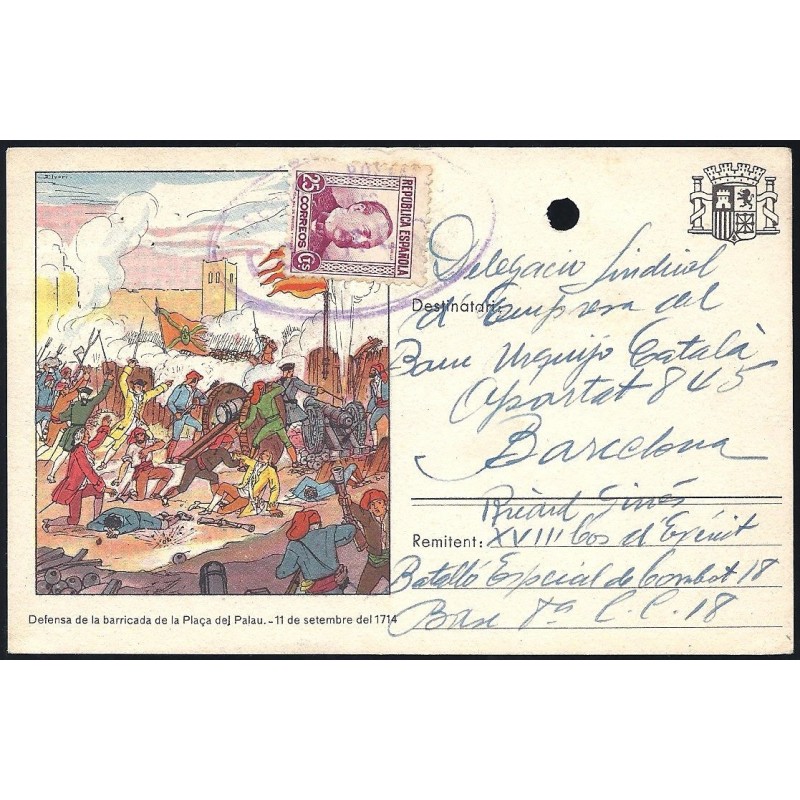 25
CORREOS
Cts
REPÚBLICA ESPAÑOLA
Delegació Sindical
Destinatari:
d'Empresa del
Banc Urquijo Català
Apartat 845
Barcelona
Ricard Ginés
Remitent: XVIII Cos d'Exèrcit
Batalló Especial de Combat 18
Base 7ª C.C. 18
Defensa de la barricada de la Plaça del Palau.-11 de setembre del 1714